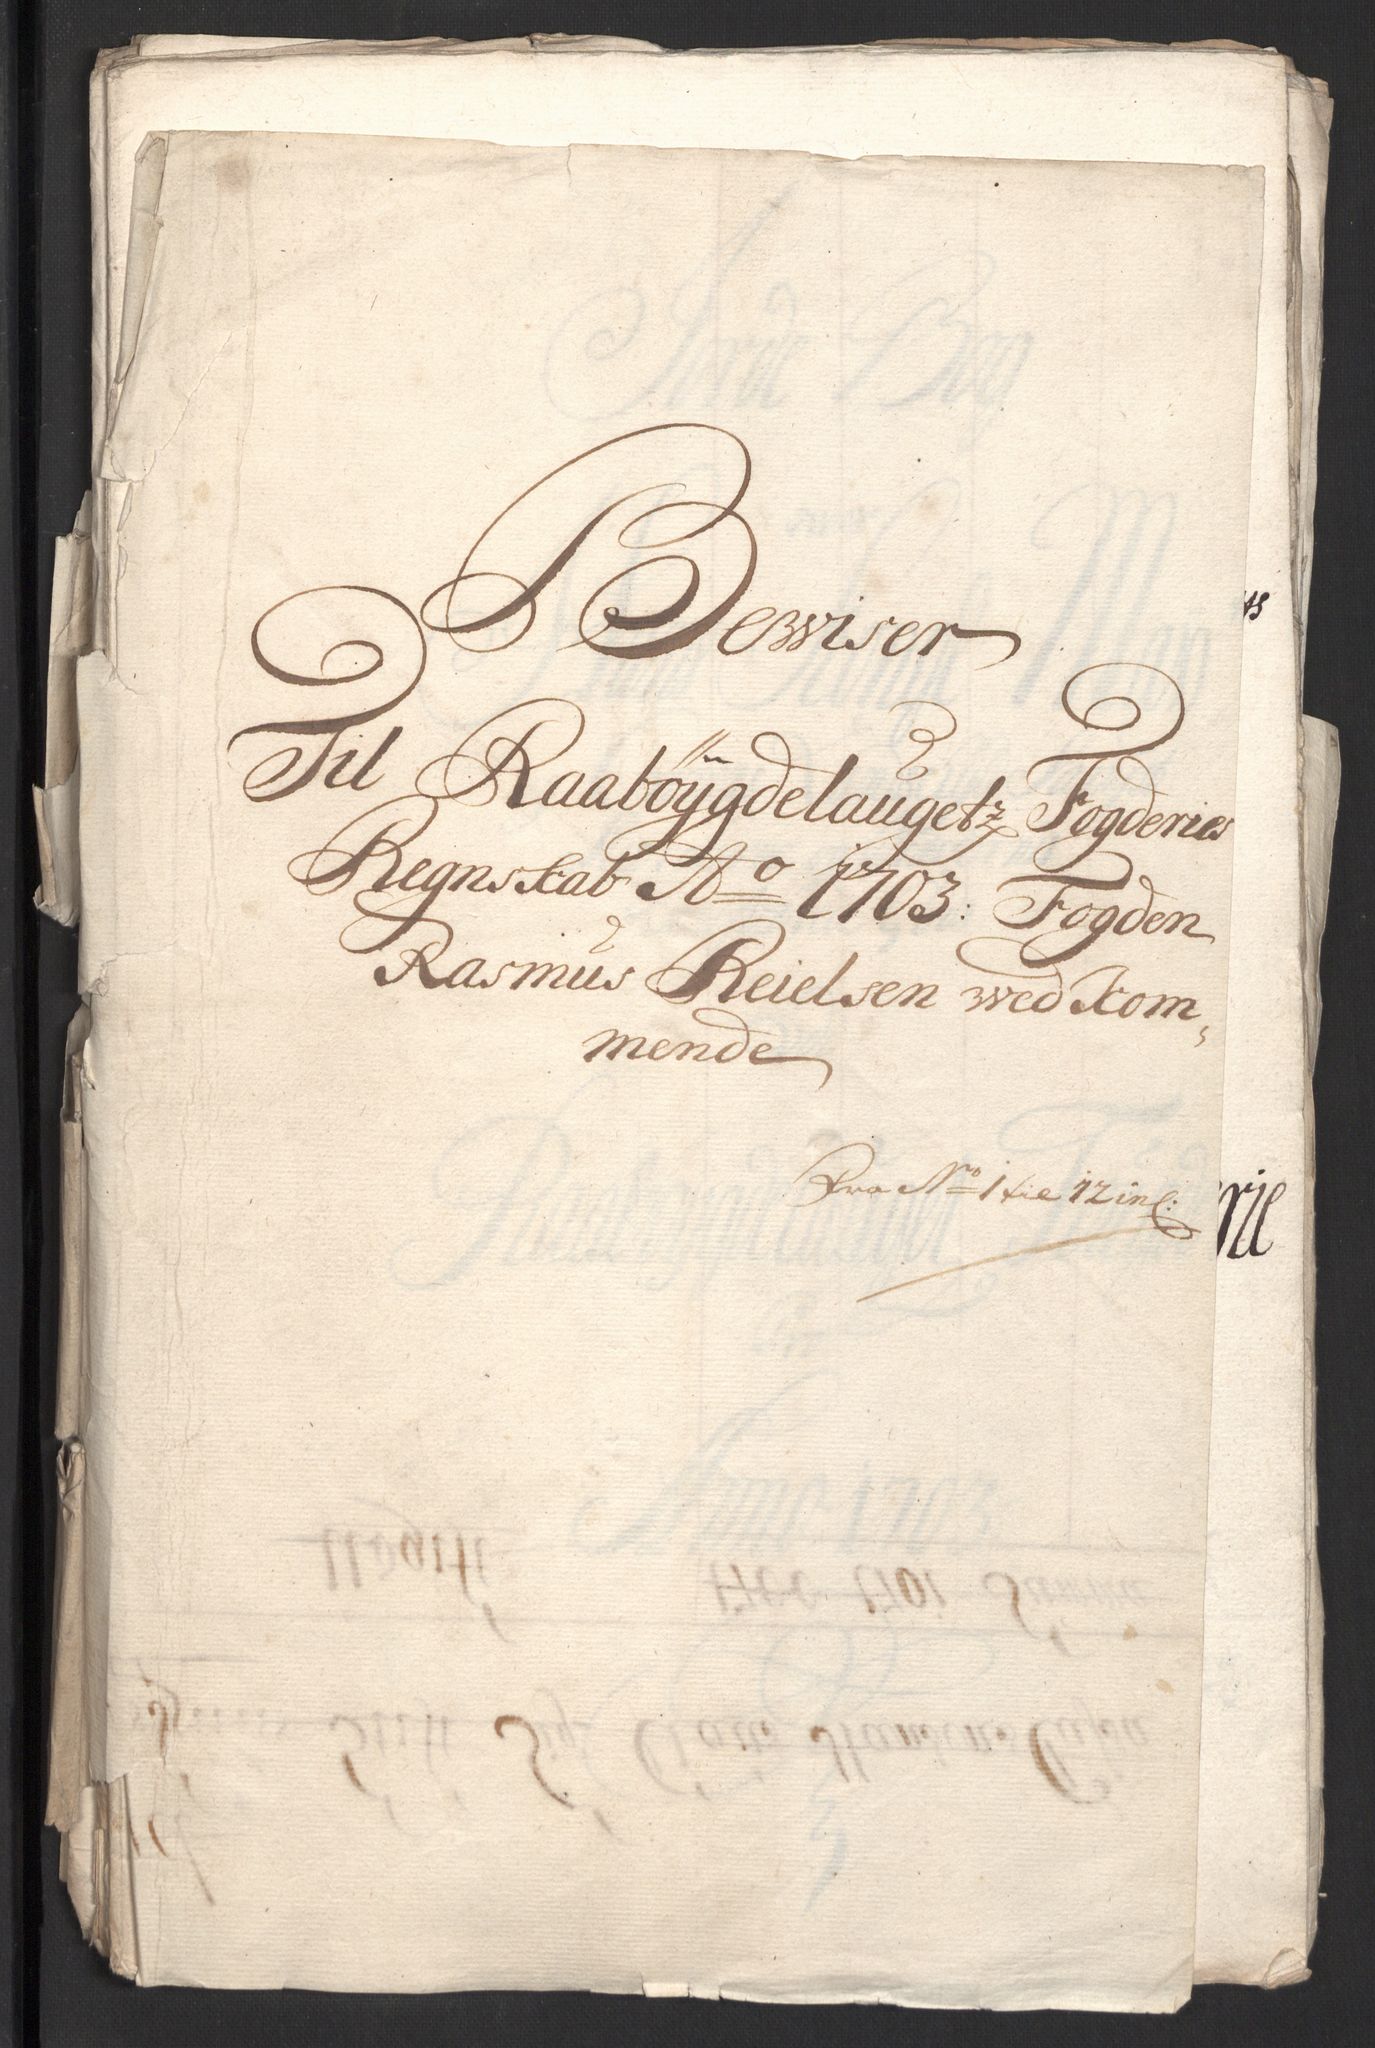 Bewiser
Til Raaböÿgdelaugetz Fogderies
Regnskab Ao 1703: Fogden
Rasmus Reielsen wed kom-
mende
Fra No 1 tie 12 incl: